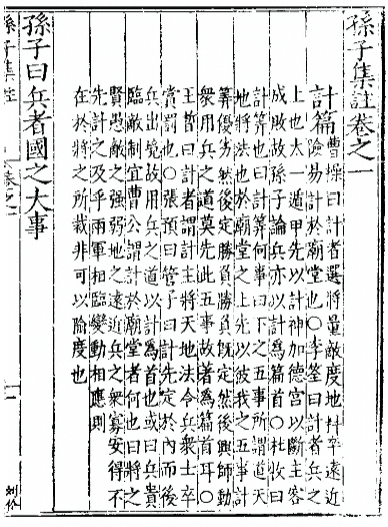 孫子集註卷之一
計篇曹操曰計者選將量敵度地料卒遠近
險易計於廟堂也○李筌曰計者兵之
上也太一遁甲先以計神加德宮以斷主客
成敗故孫子論兵亦以計為篇首○杜牧曰
計算也曰計算何事曰下之五事所謂道天
地將法也於廟堂之上先以彼我之五事計
算優劣然後定勝負勝負既定然後興師動
衆用兵之道莫先此五事故著為篇首耳○
王晳曰計者謂計主將天地法令兵衆士卒
賞罰也○張預曰管子曰計先定於內而後
兵出境故用兵之道以計為首也或曰兵貴
臨敵制宜曹公謂計於廟堂者何也曰將之
賢愚敵之强弱地之遠近兵之衆寡安得不
先計之及乎兩軍相臨變動相應則
在於將之所裁非可以隃度也
孫子曰兵者國之大事
孫子集註
卷之一
一